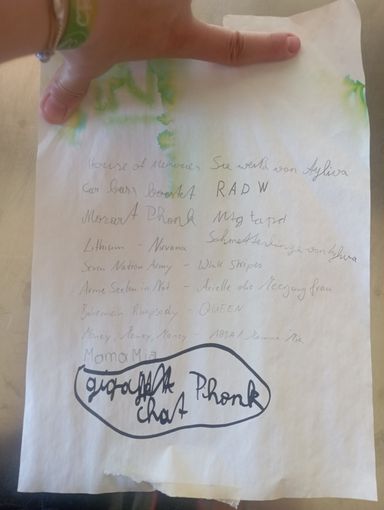 House of Memories Sie weiß von Ayliva
Car bass boostet RADW
Mozart Phonk Mtg tapd
Lithium - Nirvana Schmetterlinge von Ayliva
Seven Nation Army - White Stripes
Arme Seelen in Not - Arielle die Meerjungfrau
Bohemian Rhapsody - QUEEN
Money, Money, Money - ABBA Mamma Mia
Mama Mia
giga Phonk
chat